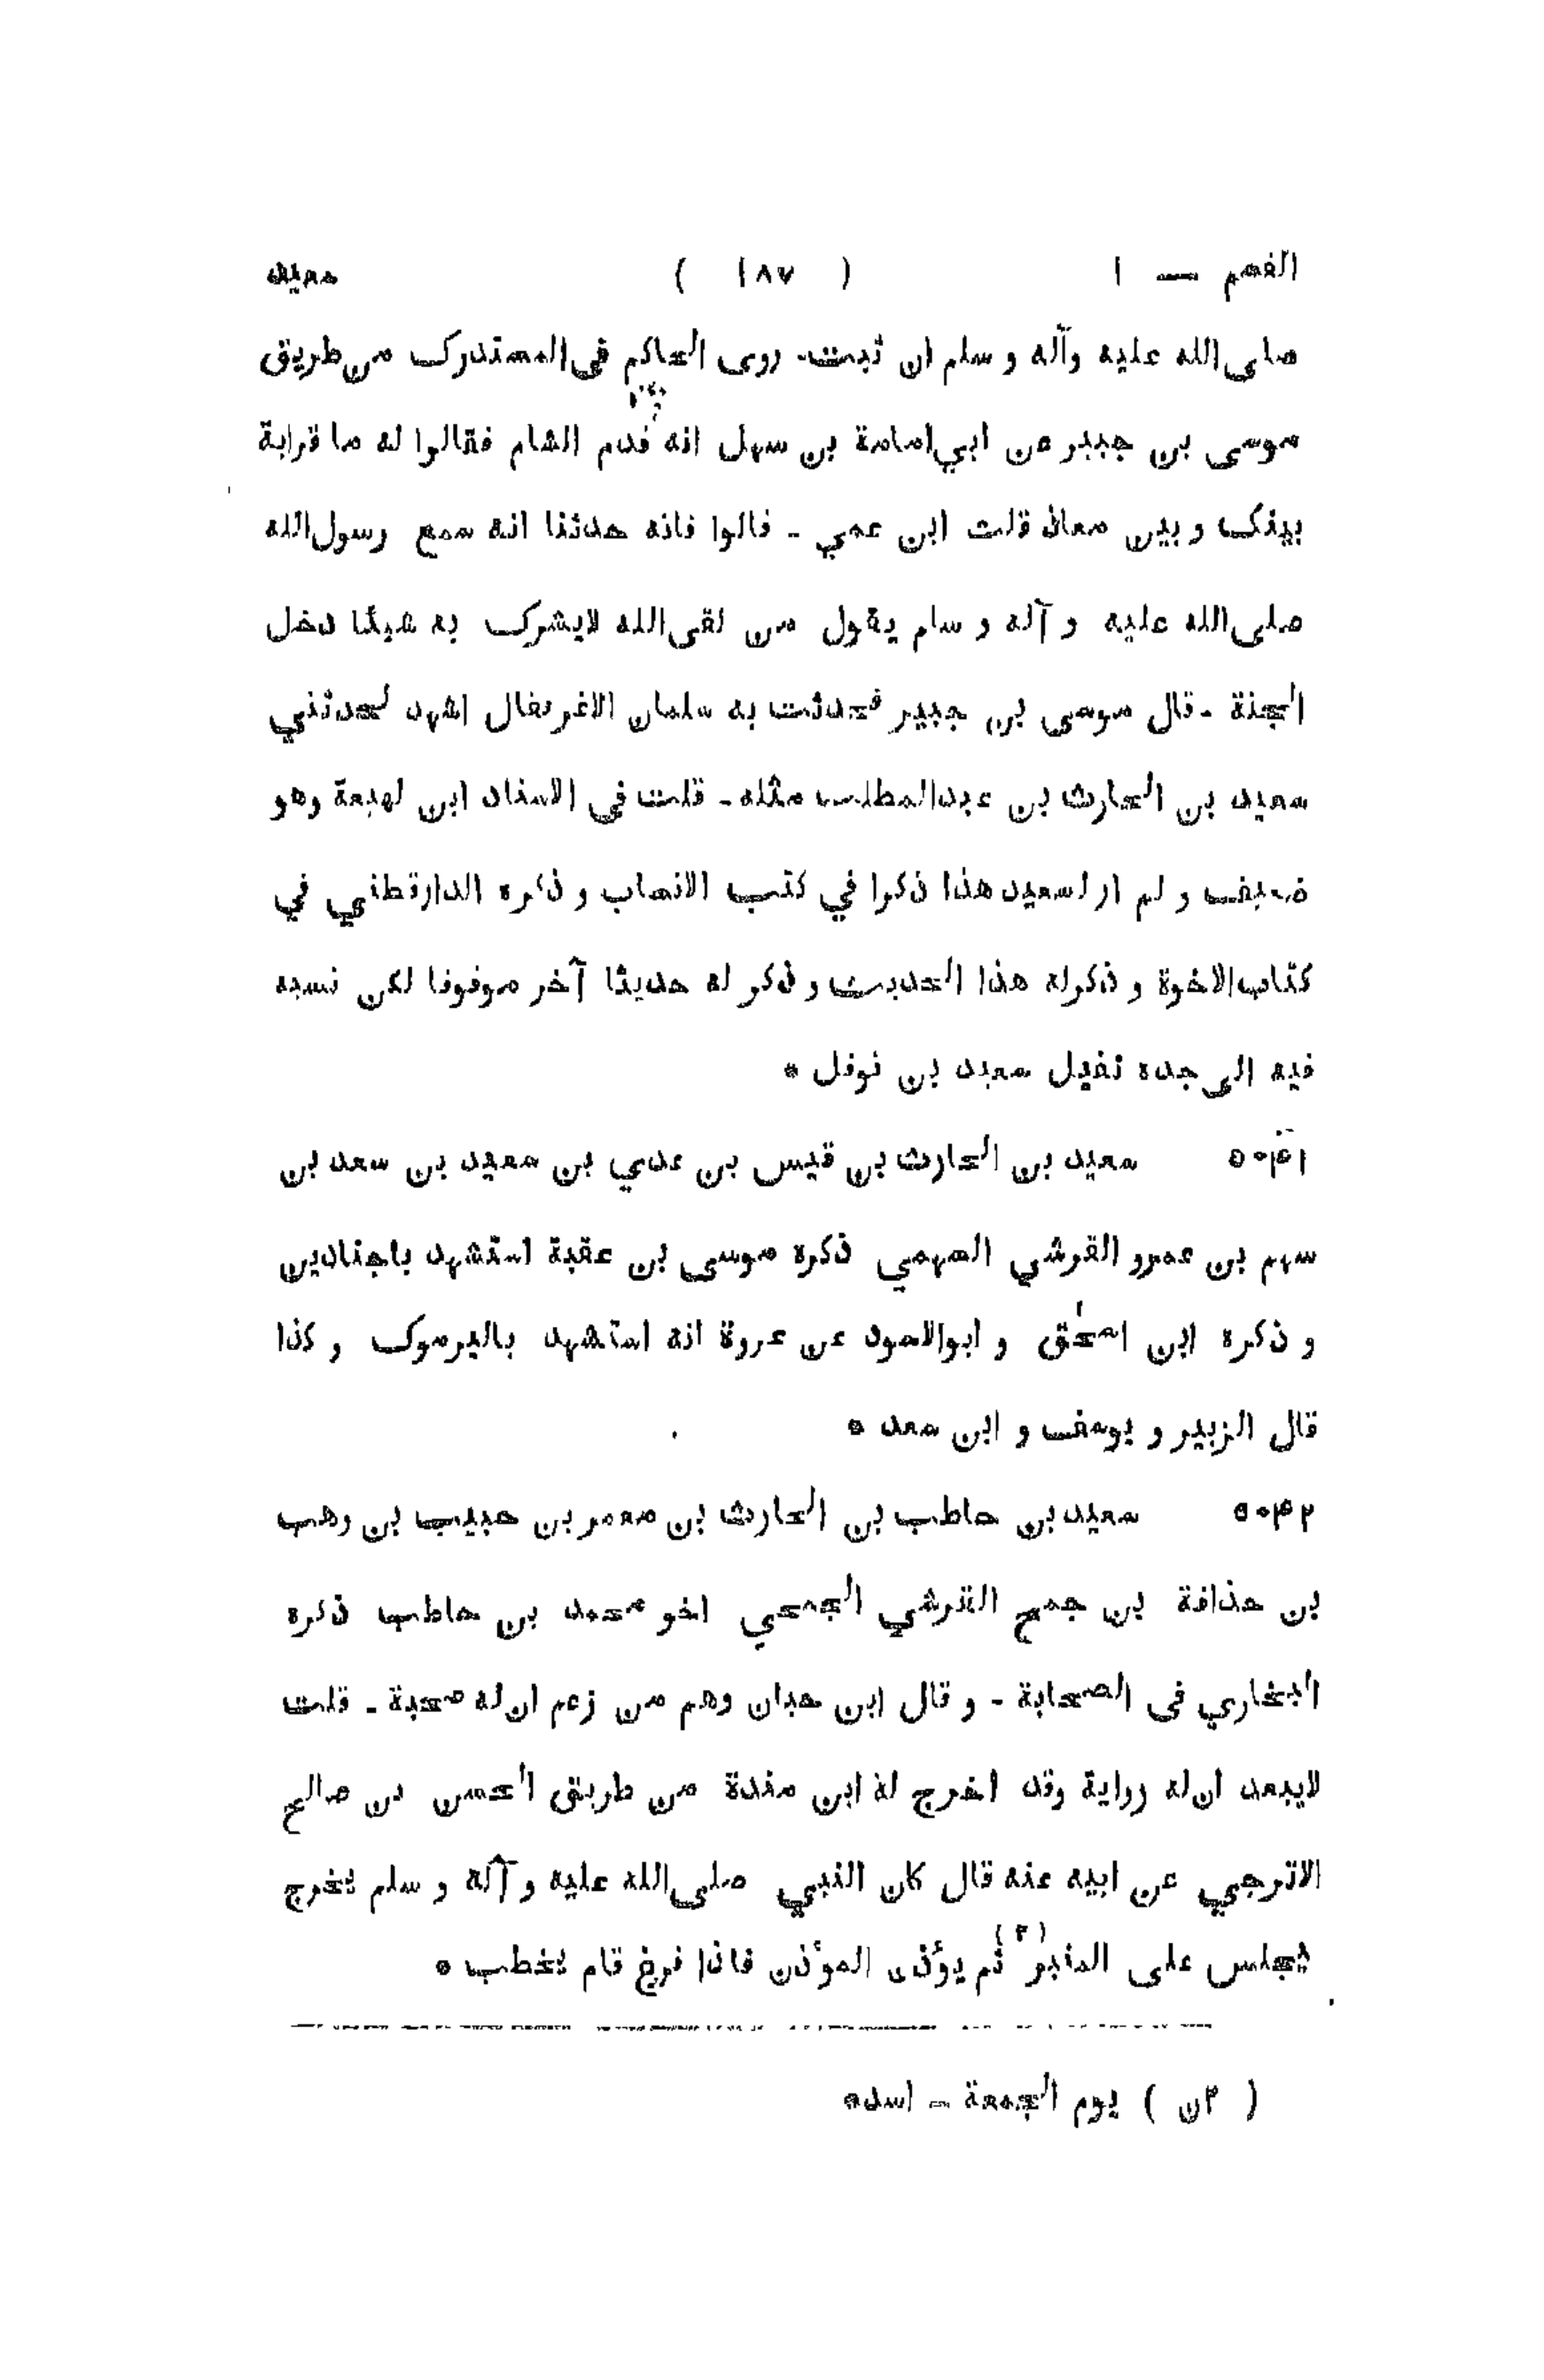 القسم — ١ ( ١٨٧ ) سعيد
صلى الله عليه وآله و سلم ان ثبت- روى الحاكم فى المستدرك من طريق
موسى بن جبير عن ابي امامة بن سهل انه قدم الشام فقالوا له ما قرابة
بينك و بين معاذ قلت ابن عمي - قالوا فانه حدثنا انه سمع رسول الله
صلى الله عليه و آله و سلم يقول من لقى الله لايشرك به شيئا دخل
الجنة - قال موسى بن جبير فحدثت به سلمان الاغر فقال اشهد لحدثني
سعيد بن الحارث بن عبدالمطلب مثله - قلت فى الاسناد ابن لهيعة وهو
ضعيف و لم ار لسعيد هذا ذكرا في كتب الانساب و ذكره الدارقطني في
كتاب الاخوة و ذكرله هذا الحديث و ذكر له حديثا آخر موقوفا لكن نسبه
فيه الى جده فقيل سعيد بن نوفل *
٥٠۴١ سعيد بن الحارث بن قيس بن عدي بن سعيد بن سعد بن
سهم بن عمرو القرشي السهمي ذكره موسى بن عقبة استشهد باجنادين
و ذكره ابن اسحٰق و ابوالاسود عن عروة انه استشهد باليرموك و كذا
قال الزبير و يوسف و ابن سعد *
٥٠۴٢ سعيد بن حاطب بن الحارث بن معمر بن حبيب بن وهب
بن حذافة بن جمح القرشي الجمحي اخو محمد بن حاطب ذكره
البخاري فى الصحابة - و قال ابن حبان وهم من زعم ان له صحبة - قلت
لايبعد ان له رواية وقد اخرج له ابن مندة من طريق الحسن بن صالح
الاترجي عن ابيه عنه قال كان النبي صلى الله عليه و آله و سلم يخرج
فيجلس على المنبر (٢) ثم يؤذن المؤذن فاذا فرغ قام يخطب *
( ٢ن ) يوم الجمعة - اسد*